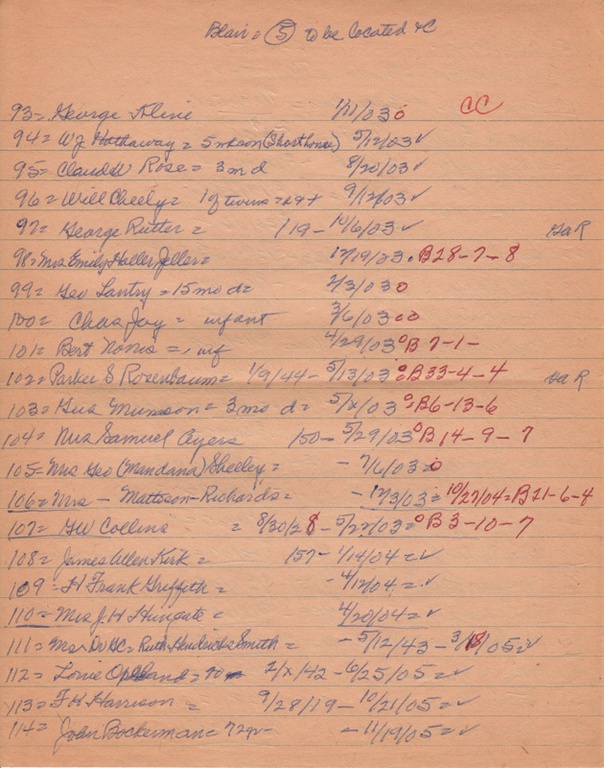 Blair = 5 to be located &C
93 = George Aline 1/11/03 0 CC
94 = WJ Hathaway = 5 mkson (Shorthouse) 5/12/03 ✓
95 = Claud W Rose = 3 m d 8/20/03 ✓
96 = Will Cheely = 1 of twins = 9/12/03 ✓
97 = George Rutter = 119 - 10/6/03 ✓ GaR
98 = Mrs Emily Haller Jeller = 12/19/03 . B28-7-8
99 = Geo Lantry = 15 mo d = 2/3/03 0
100 = Chas Jay = infant 3/6/03
101 = Bert Norris = , inf 4/29/03 0 B 7-1-
102 = Parker S Rosenbaum = 1/9/44 - 5/13/03 0 = B33-4-4 GaR
103 = Gus Munson = 3 mo d = 5/x/03 0 = B6-13-6
104 = Mrs Samuel Ayers 150 - 5/29/03 0 B14-9-7
105 = Mrs Geo (Mandana) Sheeley = - 7/6/03 = 0
106 = Mrs - Mattson - Richards = - 12/3/03 = 10/27/04 = B21-6-4
107 = GW Collins = 8/30/28 - 5/22/03 = 0 B3-10-7
108 = James Allen Kirk = 157 - 1/14/04 = ✓
109 = H Frank Griffith = - 4/12/04 = . ✓
110 = Mrs J. H Hungate = 4/20/04 = ✓
111 = Mrs Dr GC = Ruth Hendricks Smith = - 5/12/43 - 3/18/05 = ✓
112 = Lonie = 70 2/x/42 - 6/25/05 = ✓
113 = F H Harrison = 9/28/19 - 10/21/05 = ✓
114 = John Bockerman = 72 yr - - 11/19/05 = ✓